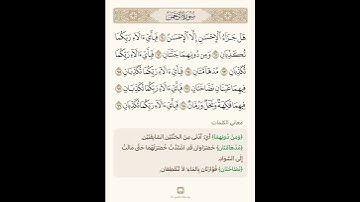 سورة الرحمن
هَلْ جَزَاءُ الْإِحْسَانِ إِلَّا الْإِحْسَانُ ۝ فَبِأَيِّ آلَاءِ رَبِّكُمَا
تُكَذِّبَانِ ۝ وَمِن دُونِهِمَا جَنَّتَانِ ۝ فَبِأَيِّ آلَاءِ رَبِّكُمَا
تُكَذِّبَانِ ۝ مُدْهَامَّتَانِ ۝ فَبِأَيِّ آلَاءِ رَبِّكُمَا تُكَذِّبَانِ ۝
فِيهِمَا عَيْنَانِ نَضَّاخَتَانِ ۝ فَبِأَيِّ آلَاءِ رَبِّكُمَا تُكَذِّبَانِ ۝
فِيهِمَا فَاكِهَةٌ وَنَخْلٌ وَرُمَّانٌ ۝ فَبِأَيِّ آلَاءِ رَبِّكُمَا تُكَذِّبَانِ ۝
معاني الكلمات
﴿وَمِن دُونِهِمَا﴾ أَيْ: أَدْنَى مِنَ الجَنَّتَيْنِ السَّابِقَتَيْنِ.
﴿مُدْهَامَّتَانِ﴾ خَضْرَاوَانِ قَدِ اشْتَدَّتْ خُضْرَتُهُمَا حَتَّى مَالَتْ
إِلَى السَّوَادِ.
﴿نَضَّاخَتَانِ﴾ فَوَّارَتَانِ بِالمَاءِ لَا تَنْقَطِعَانِ.